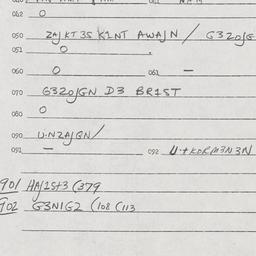 062 O
050 ZAJKT3S K1NT AWAJN / G3ZOJG
051 O
060 O 061 —
070 G3ZOJGN D3 BR1ST
080 O
090 U-NZAJGN/
091 — 092 U-+KORM3N3N
901 HAJ1S+3 (379
902 G3N1G2 (108 (113